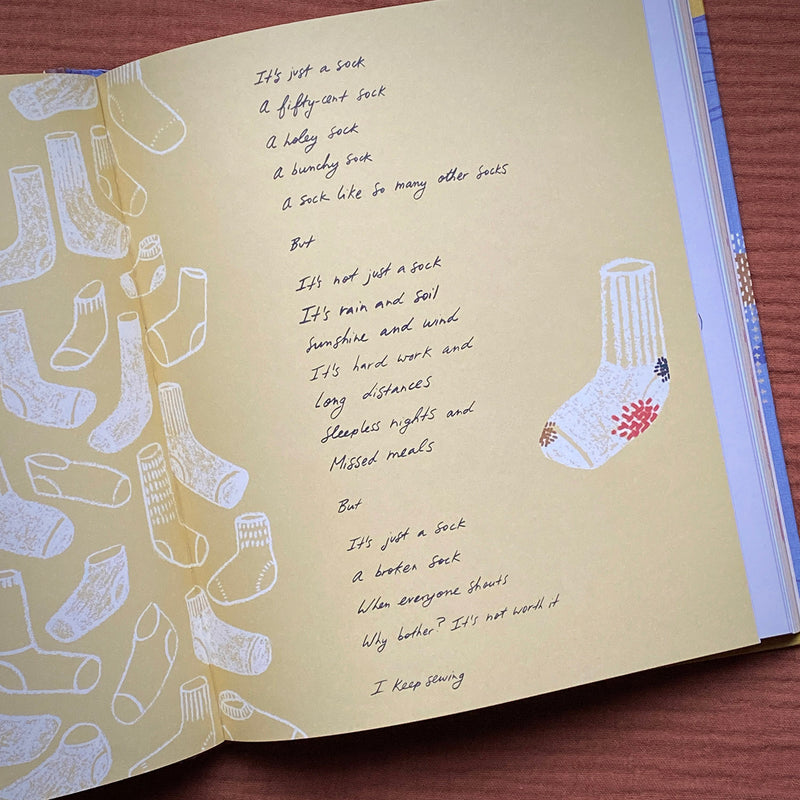 It's just a sock
A fifty-cent sock
A holey sock
A bunchy sock
A sock like so many other socks
But
It's not just a sock
It's rain and soil
Sunshine and wind
It's hard work and
Long distances
Sleepless nights and
Missed meals
But
It's just a sock
A broken sock
When everyone shouts
Why bother? It's not worth it
I keep sewing